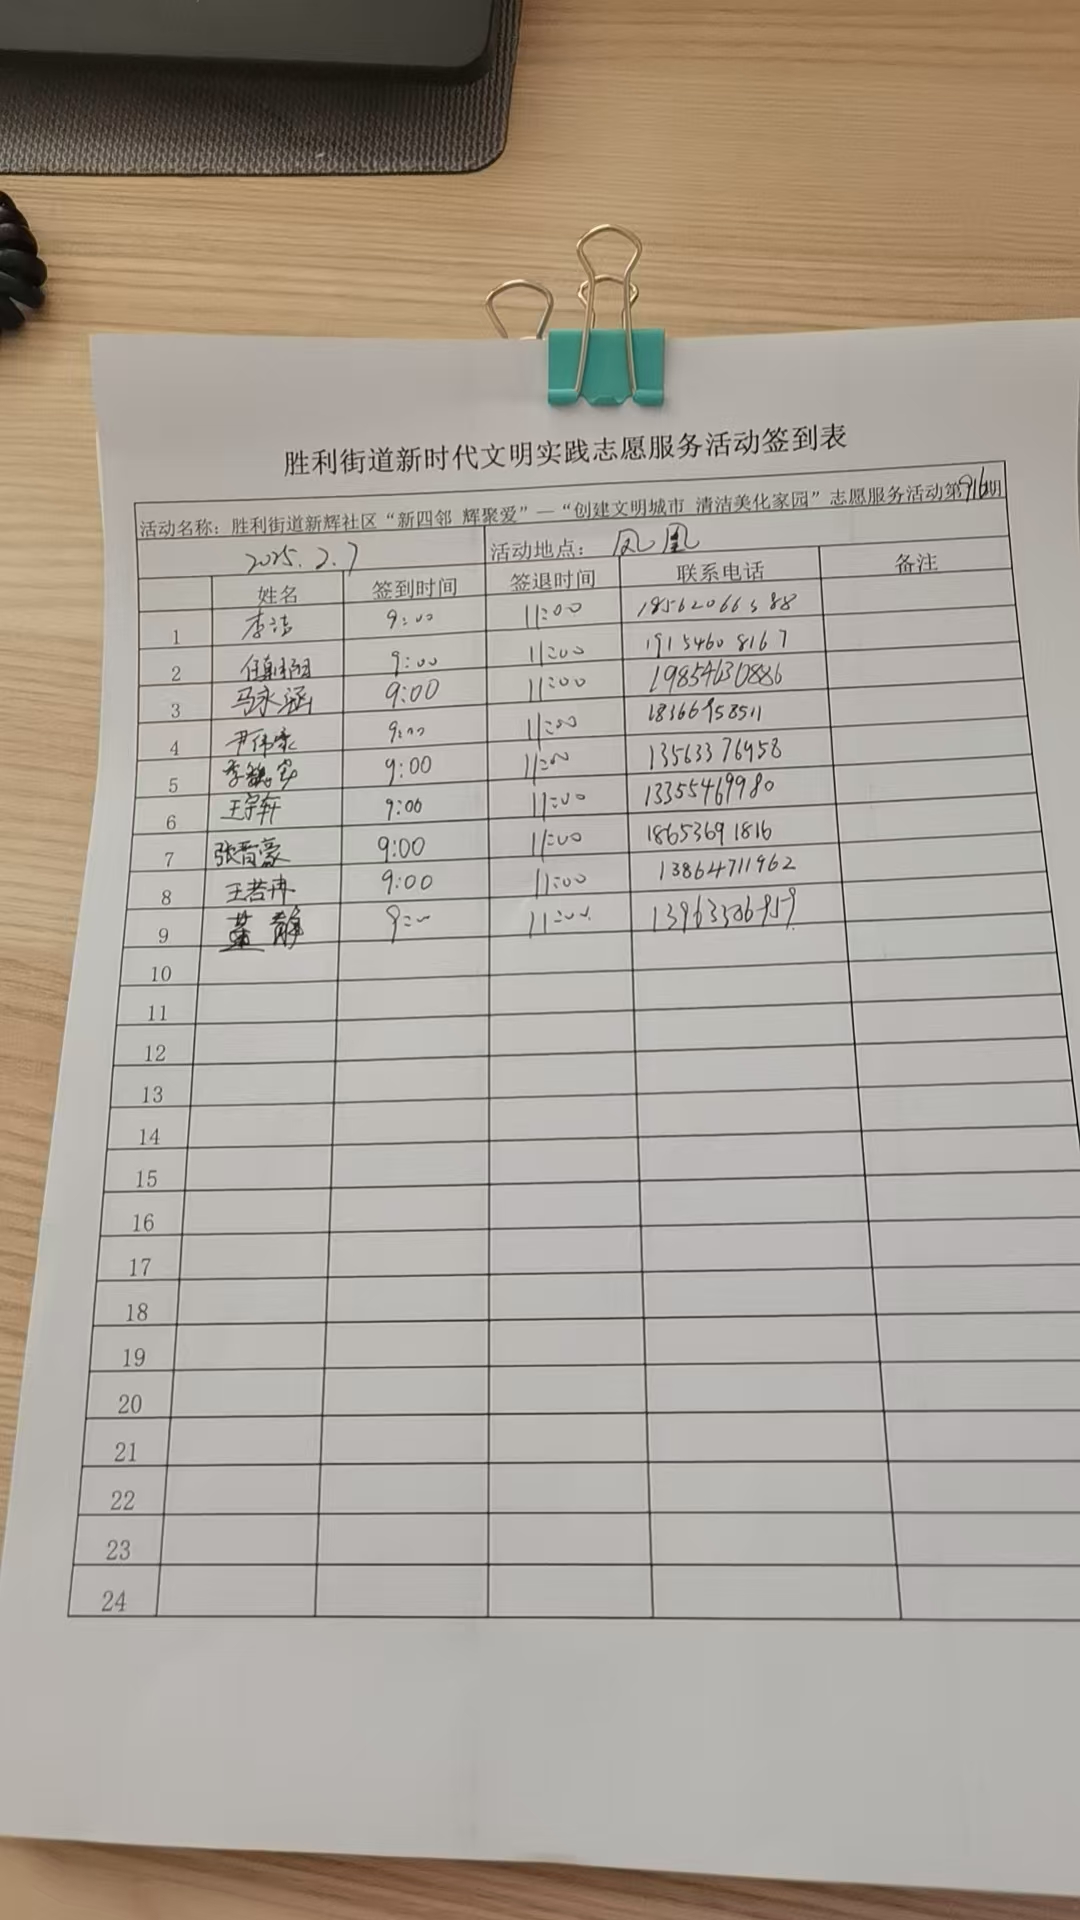 胜利街道新时代文明实践志愿服务活动签到表
活动名称：胜利街道新辉社区“新四邻 辉聚爱”—“创建文明城市 清洁美化家园”志愿服务活动第916期
2025.2.7 活动地点： 凤凰
姓名 签到时间 签退时间 联系电话 备注
1 李洁 9:00 11:00 18562066388
2 9:00 11:00 19154608167
3 马永涵 9:00 11:00 19854630886
4 尹伟家 9:00 11:00 18366958511
5 9:00 11:00 13563376958
6 王宇轩 9:00 11:00 13355469980
7 张晋豪 9:00 11:00 18653691816
8 王若冉 9:00 11:00 13864711962
9 董静 9:00 11:00
10
11
12
13
14
15
16
17
18
19
20
21
22
23
24